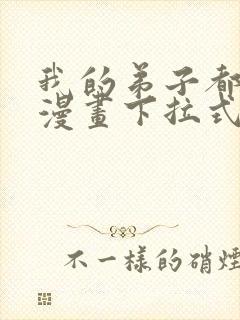 我的弟子都
漫畫下拉式
不一樣的硝煙